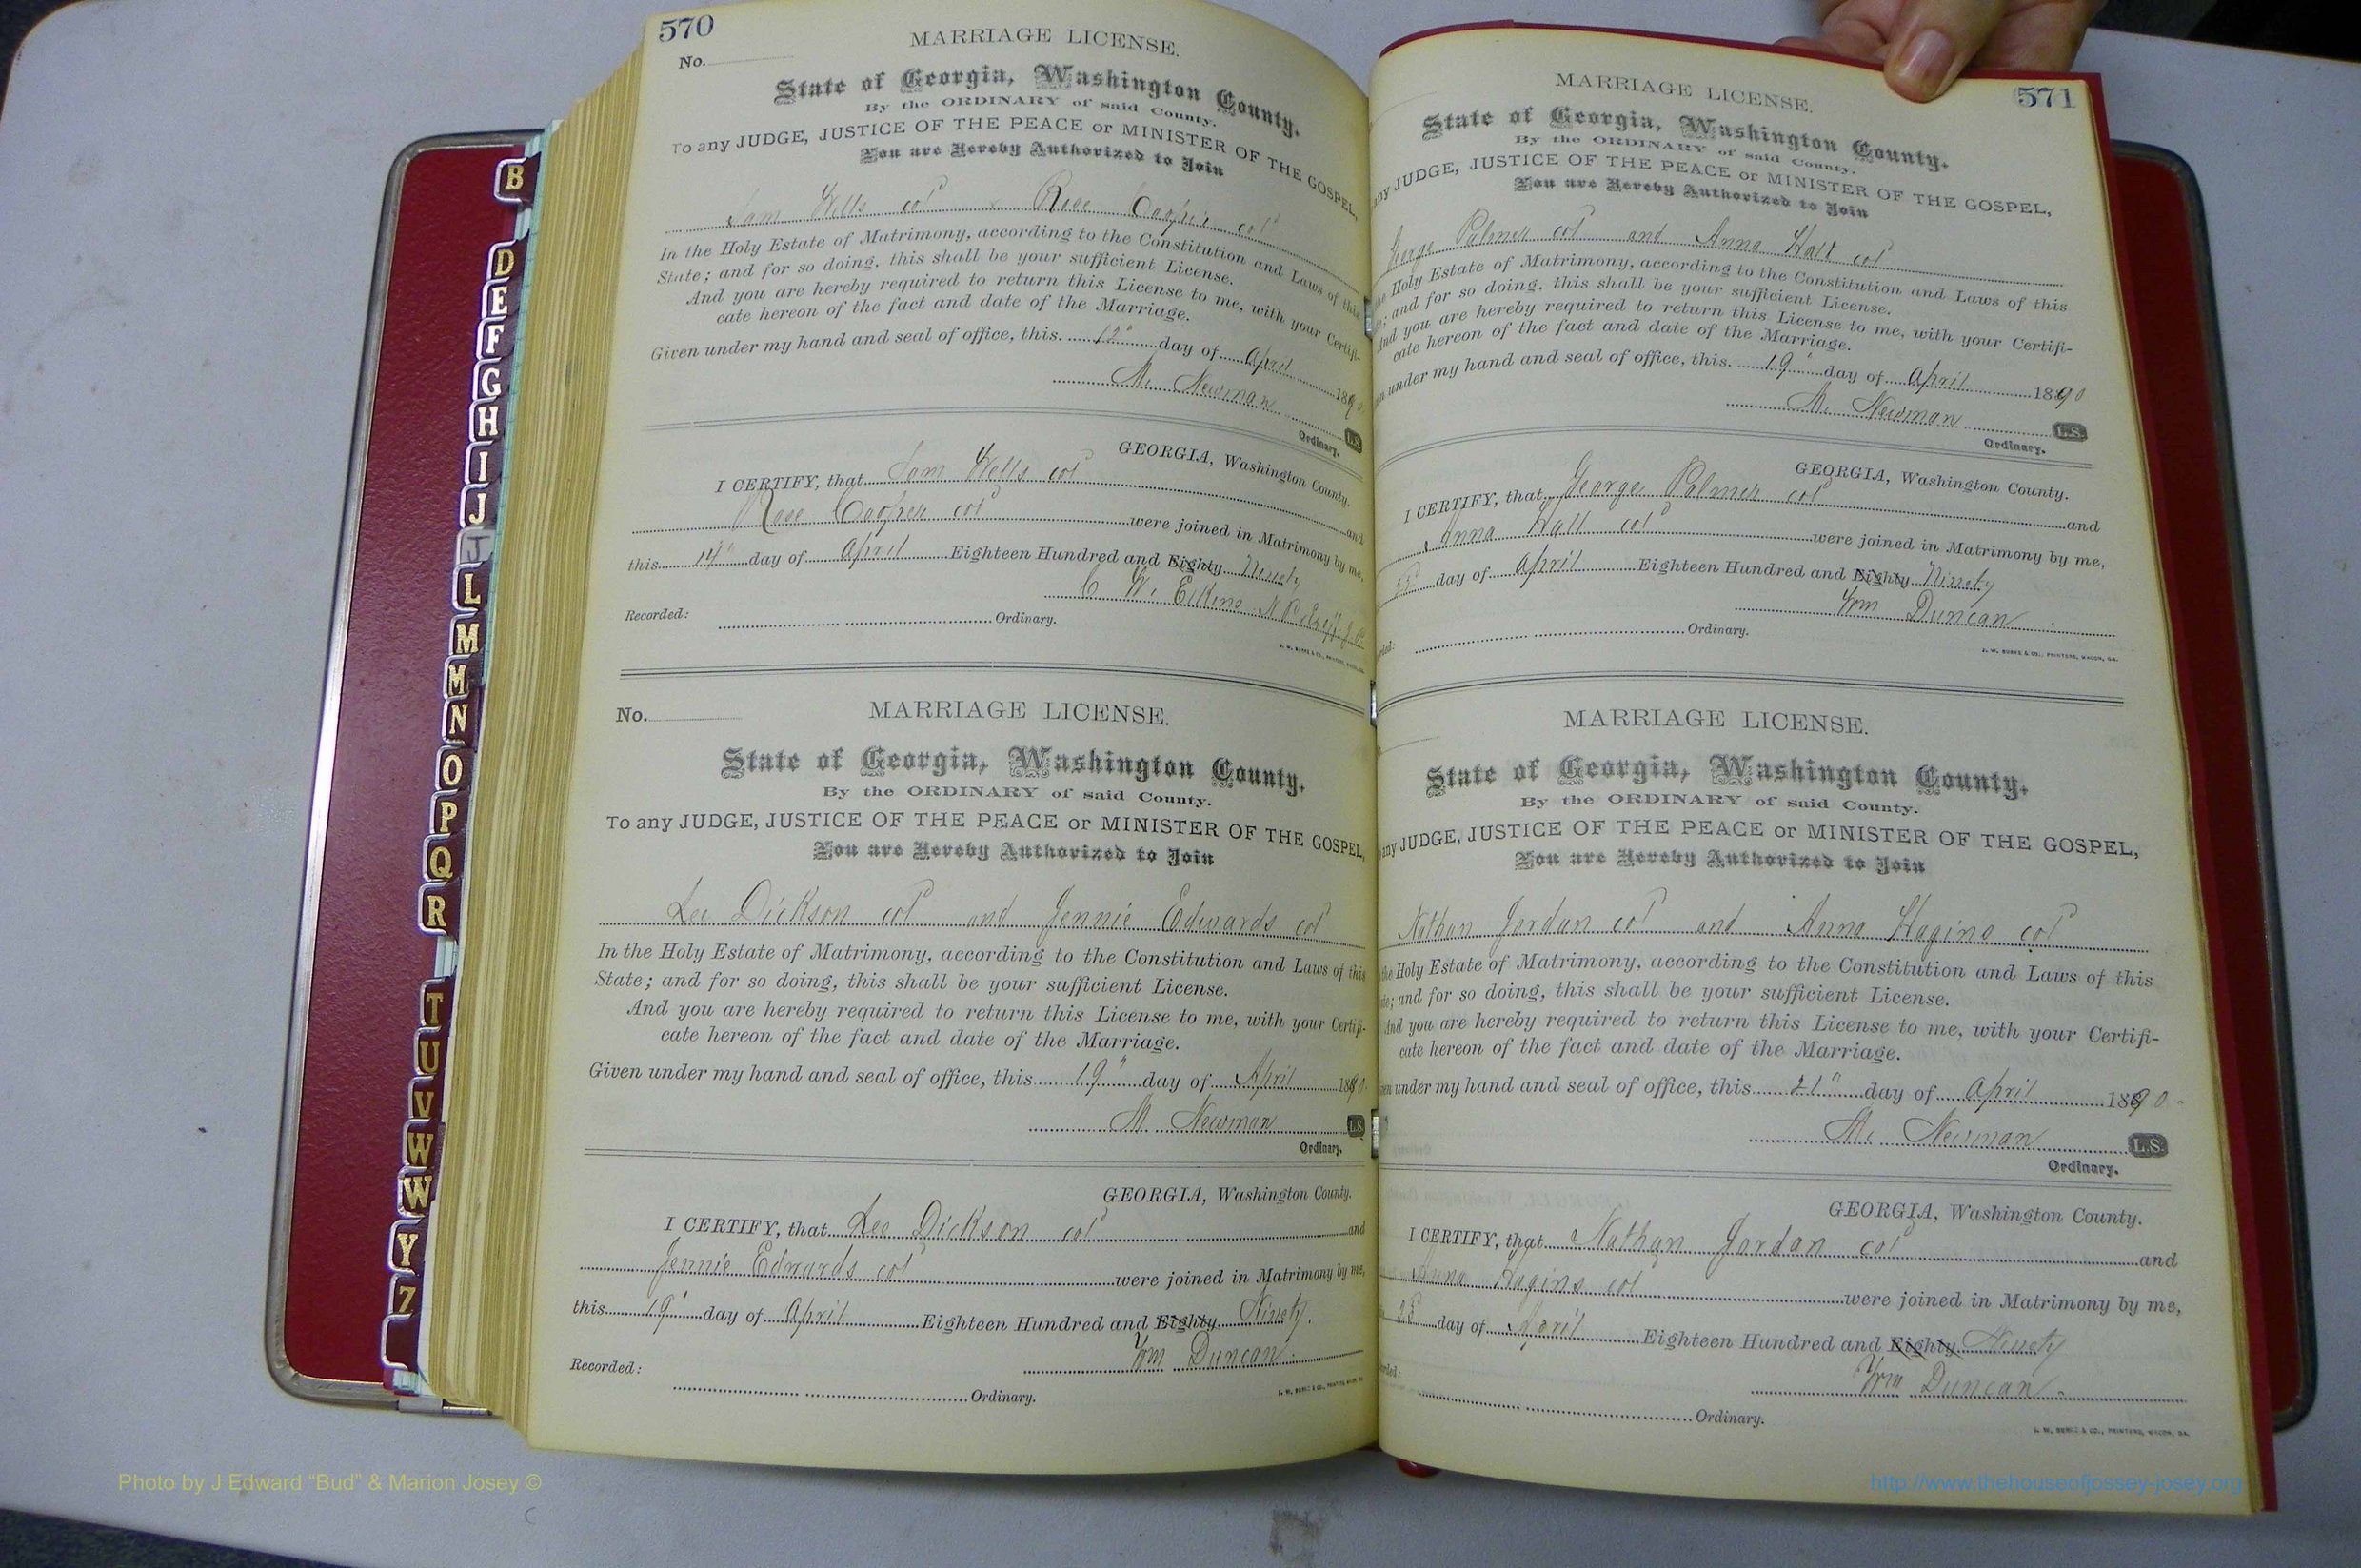 570
No.
MARRIAGE LICENSE.
State of Georgia, Washington County.
By the ORDINARY of said County.
To any JUDGE, JUSTICE OF THE PEACE or MINISTER OF THE GOSPEL,
You are Hereby Authorized to Join
Sam Wells col & Rose Cooper col
In the Holy Estate of Matrimony, according to the Constitution and Laws of this
State; and for so doing, this shall be your sufficient License.
And you are hereby required to return this License to me, with your Certifi-
cate hereon of the fact and date of the Marriage.
Given under my hand and seal of office, this 12" day of April 1890
M. Newman L.S.
Ordinary.
GEORGIA, Washington County.
I CERTIFY, that Sam Wells col and
Rose Cooper col were joined in Matrimony by me,
this 14" day of April Eighteen Hundred and Eighty Ninety
C W. Elkins N.P.
Recorded: Ordinary.
J. W. BURKE & CO., PRINTERS, MACON, GA.
No.
MARRIAGE LICENSE.
State of Georgia, Washington County.
By the ORDINARY of said County.
To any JUDGE, JUSTICE OF THE PEACE or MINISTER OF THE GOSPEL,
You are Hereby Authorized to Join
Lee Dickson col and Jennie Edwards col
In the Holy Estate of Matrimony, according to the Constitution and Laws of this
State; and for so doing, this shall be your sufficient License.
And you are hereby required to return this License to me, with your Certifi-
cate hereon of the fact and date of the Marriage.
Given under my hand and seal of office, this 19" day of April 1890
M Newman L.S.
Ordinary.
GEORGIA, Washington County.
I CERTIFY, that Lee Dickson col and
Jennie Edwards col were joined in Matrimony by me,
this 19" day of April Eighteen Hundred and Eighty Ninety.
Wm Duncan.
Recorded: Ordinary.
J. W. BURKE & CO., PRINTERS, MACON, GA.
571
MARRIAGE LICENSE.
State of Georgia, Washington County.
By the ORDINARY of said County.
any JUDGE, JUSTICE OF THE PEACE or MINISTER OF THE GOSPEL,
You are Hereby Authorized to Join
George Palmer col and Anna Hall col
the Holy Estate of Matrimony, according to the Constitution and Laws of this
te; and for so doing, this shall be your sufficient License.
And you are hereby required to return this License to me, with your Certifi-
cate hereon of the fact and date of the Marriage.
en under my hand and seal of office, this 19" day of April 1890
M. Newman L.S.
Ordinary.
GEORGIA, Washington County.
I CERTIFY, that George Palmer col and
Anna Hall col were joined in Matrimony by me,
day of April Eighteen Hundred and Eighty Ninety
Wm Duncan
rded: Ordinary.
J. W. BURKE & CO., PRINTERS, MACON, GA.
MARRIAGE LICENSE.
State of Georgia, Washington County.
By the ORDINARY of said County.
any JUDGE, JUSTICE OF THE PEACE or MINISTER OF THE GOSPEL,
You are Hereby Authorized to Join
Nathan Jordan col and Anna Hagins col
the Holy Estate of Matrimony, according to the Constitution and Laws of this
te; and for so doing, this shall be your sufficient License.
And you are hereby required to return this License to me, with your Certifi-
cate hereon of the fact and date of the Marriage.
en under my hand and seal of office, this 21" day of April 1890
M. Newman L.S.
Ordinary.
GEORGIA, Washington County.
I CERTIFY, that Nathan Jordan col and
Anna Hagins col were joined in Matrimony by me,
day of April Eighteen Hundred and Eighty Ninety
Wm Duncan.
rded: Ordinary.
J. W. BURKE & CO., PRINTERS, MACON, GA.
B
D
E
F
G
H
I
J
J
L
M
M
N
O
P
Q
R
T
U
V
W
W
Y
Z
Photo by J Edward “Bud” & Marion Josey ©
http://www.thehouseofjossey-josey.org